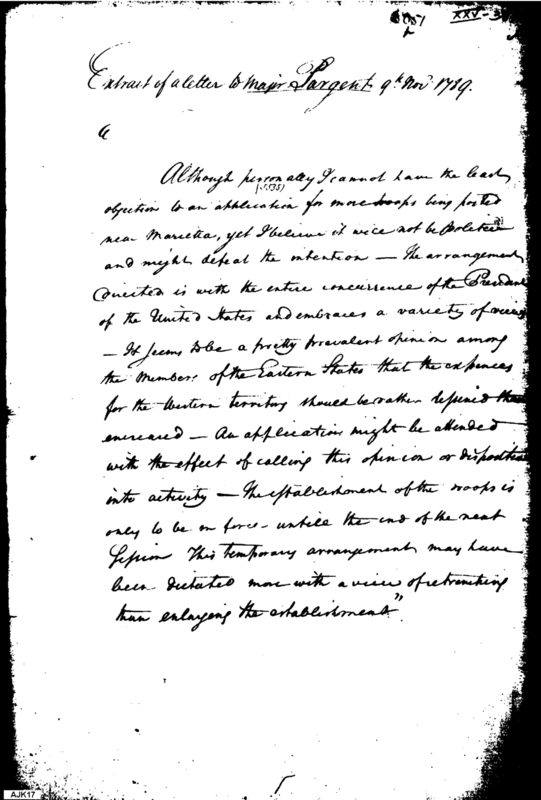 XXV-3
Extract of a letter to Major Sargent 9th Novr 1789.
"
Although personally I cannot have the least
objection to an application for more troops being posted
near Marietta, yet I believe it wice not be Politic
and might defeat the intention — The arrangement
directed is with the entire concurrence of the President
of the United States and embraces a variety of views
— It seems to be a pretty prevalent opinion among
the Members of the Eastern States that the expences
for the Western territory should be rather lessened than
encreased — An application might be attended
with the effect of calling this opinion or disposition
into activity — The establishment of the troops is
only to be in force untill the end of the next
Session This temporary arrangement may have
been dictated more with a view of retrenching
than enlarging the establishment"
AJK17